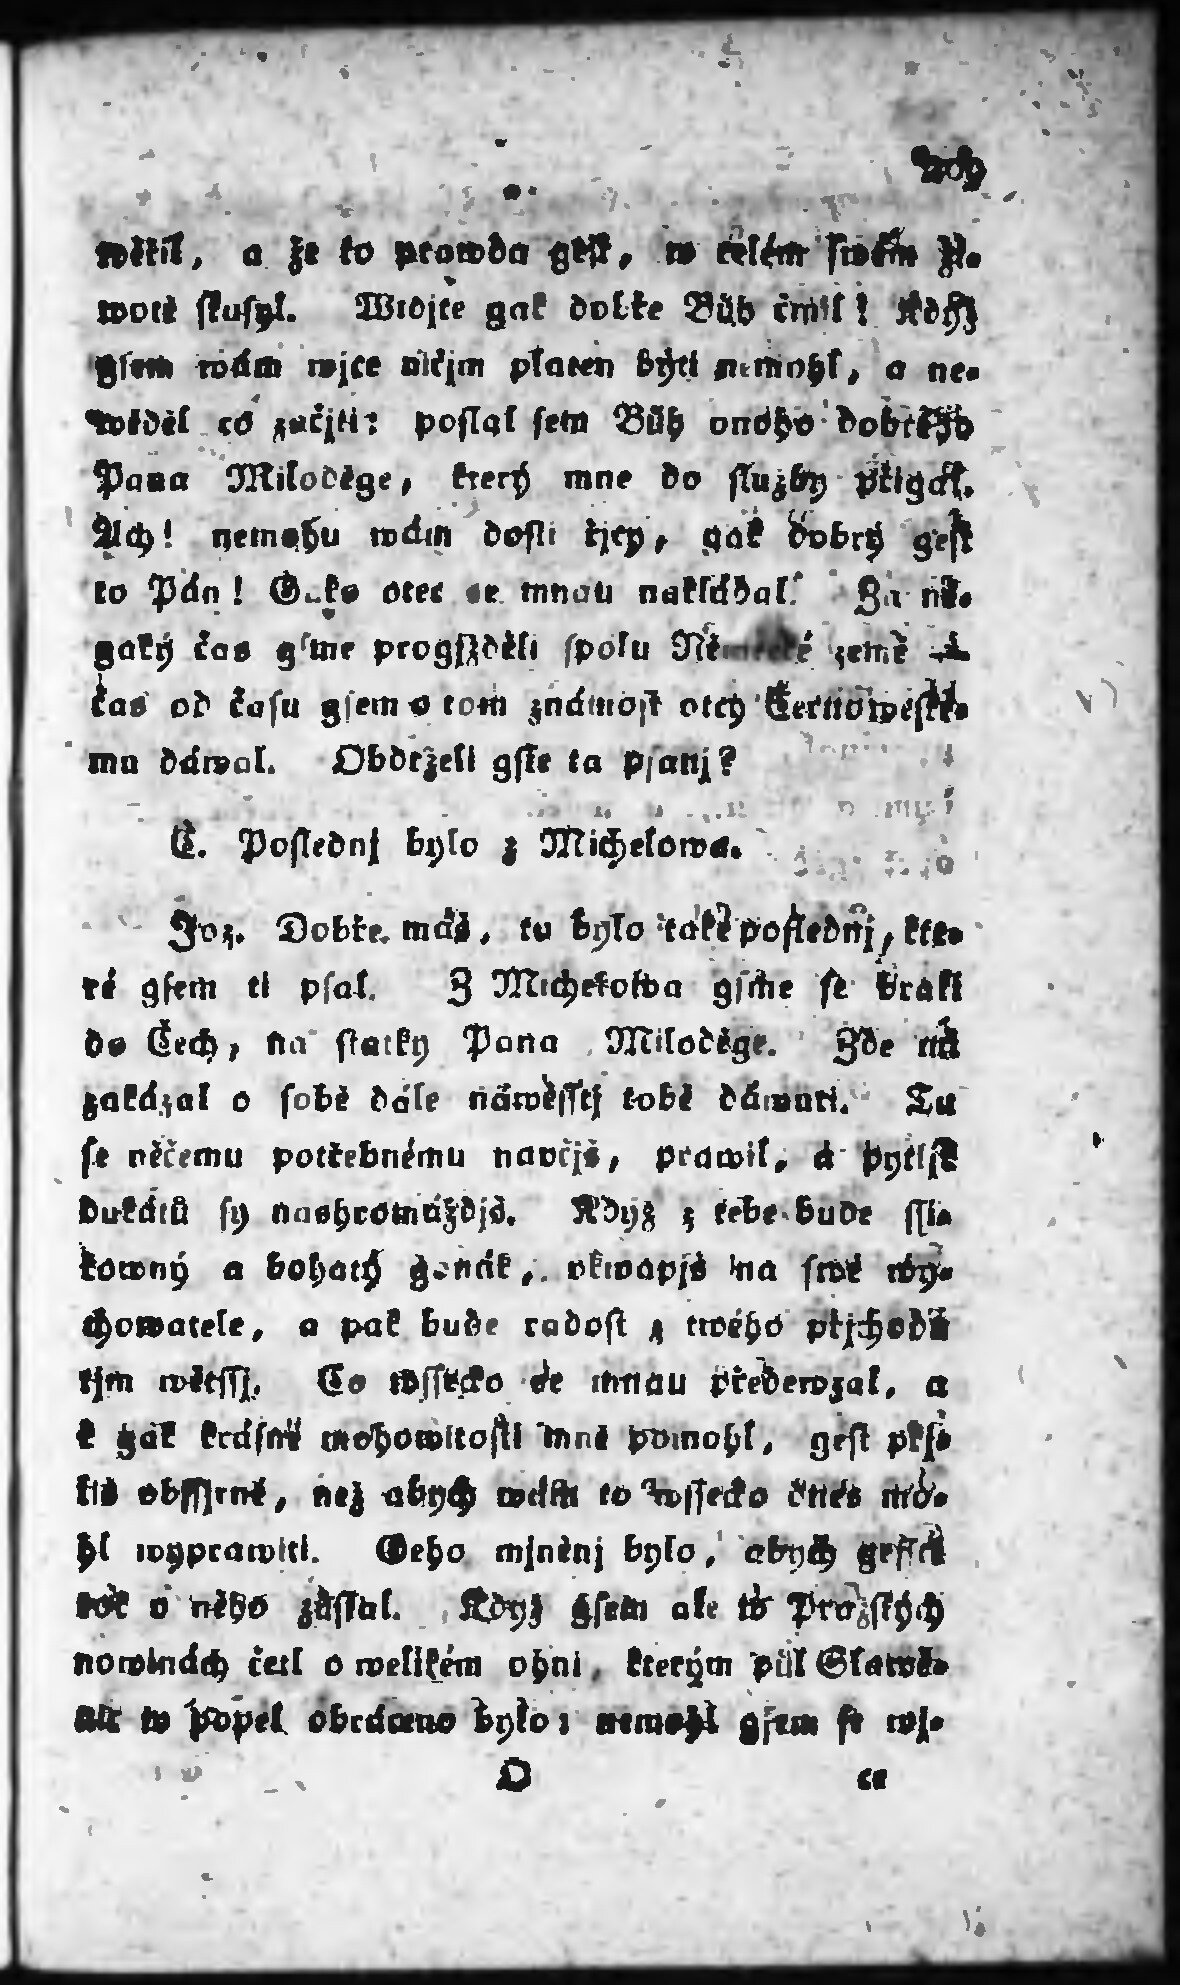 209
wěřil, a že to prawda gest, w celém swém ži-
wotě skusyl. Widjte gak dobře Bůh činil! Když
gsem wám wjce ničjm platen býti nemohl, a ne-
wěděl co začjti: poslal sem Bůh onoho dobrého
Pana Miloděge, který mne do služby přigal.
Ach! nemohu wám dosti řjcy, gak dobrý gest
to Pán! Gako otec se mnau nakládal. Za ně-
gaký čas gsme progjžděli spolu Německé země a
čas od času gsem o tom známost otcy Černowěské-
mu dáwal. Obdrželi gste ta psanj?
Č. Poslednj bylo z Michelowa.
Joz. Dobře máš, to bylo také poslednj, kte-
ré gsem ti psal. Z Michelowa gsme se brali
do Čech, na statky Pana Miloděge. Zde mi
zakázal o sobě dále náwěsstj tobě dáwati. Tu
se něčemu potřebnému naučjš, prawil, a pytljk
dukátů sy nashromáždjš. Když z tebe bude ssi-
kowný a bohatý žonák, vkwapjš na swé wy-
chowatele, a pak bude radost z twého přjchodu
tjm wětssj. Co wssecko se mnau předewzal, a
k gak krásné mohowitosti mně pomohl, gest přj-
liš obssjrné, než abych wám to wssecko dnes mo-
hl wyprawiti. Geho mjněnj bylo, abych gesstě
rok v něho zůstal. Když gsem ale w Pražských
nowinách četl o welikém ohni, kterým půl Slawě-
tic w popel obráceno bylo; nemohl gsem se wj-
O ce